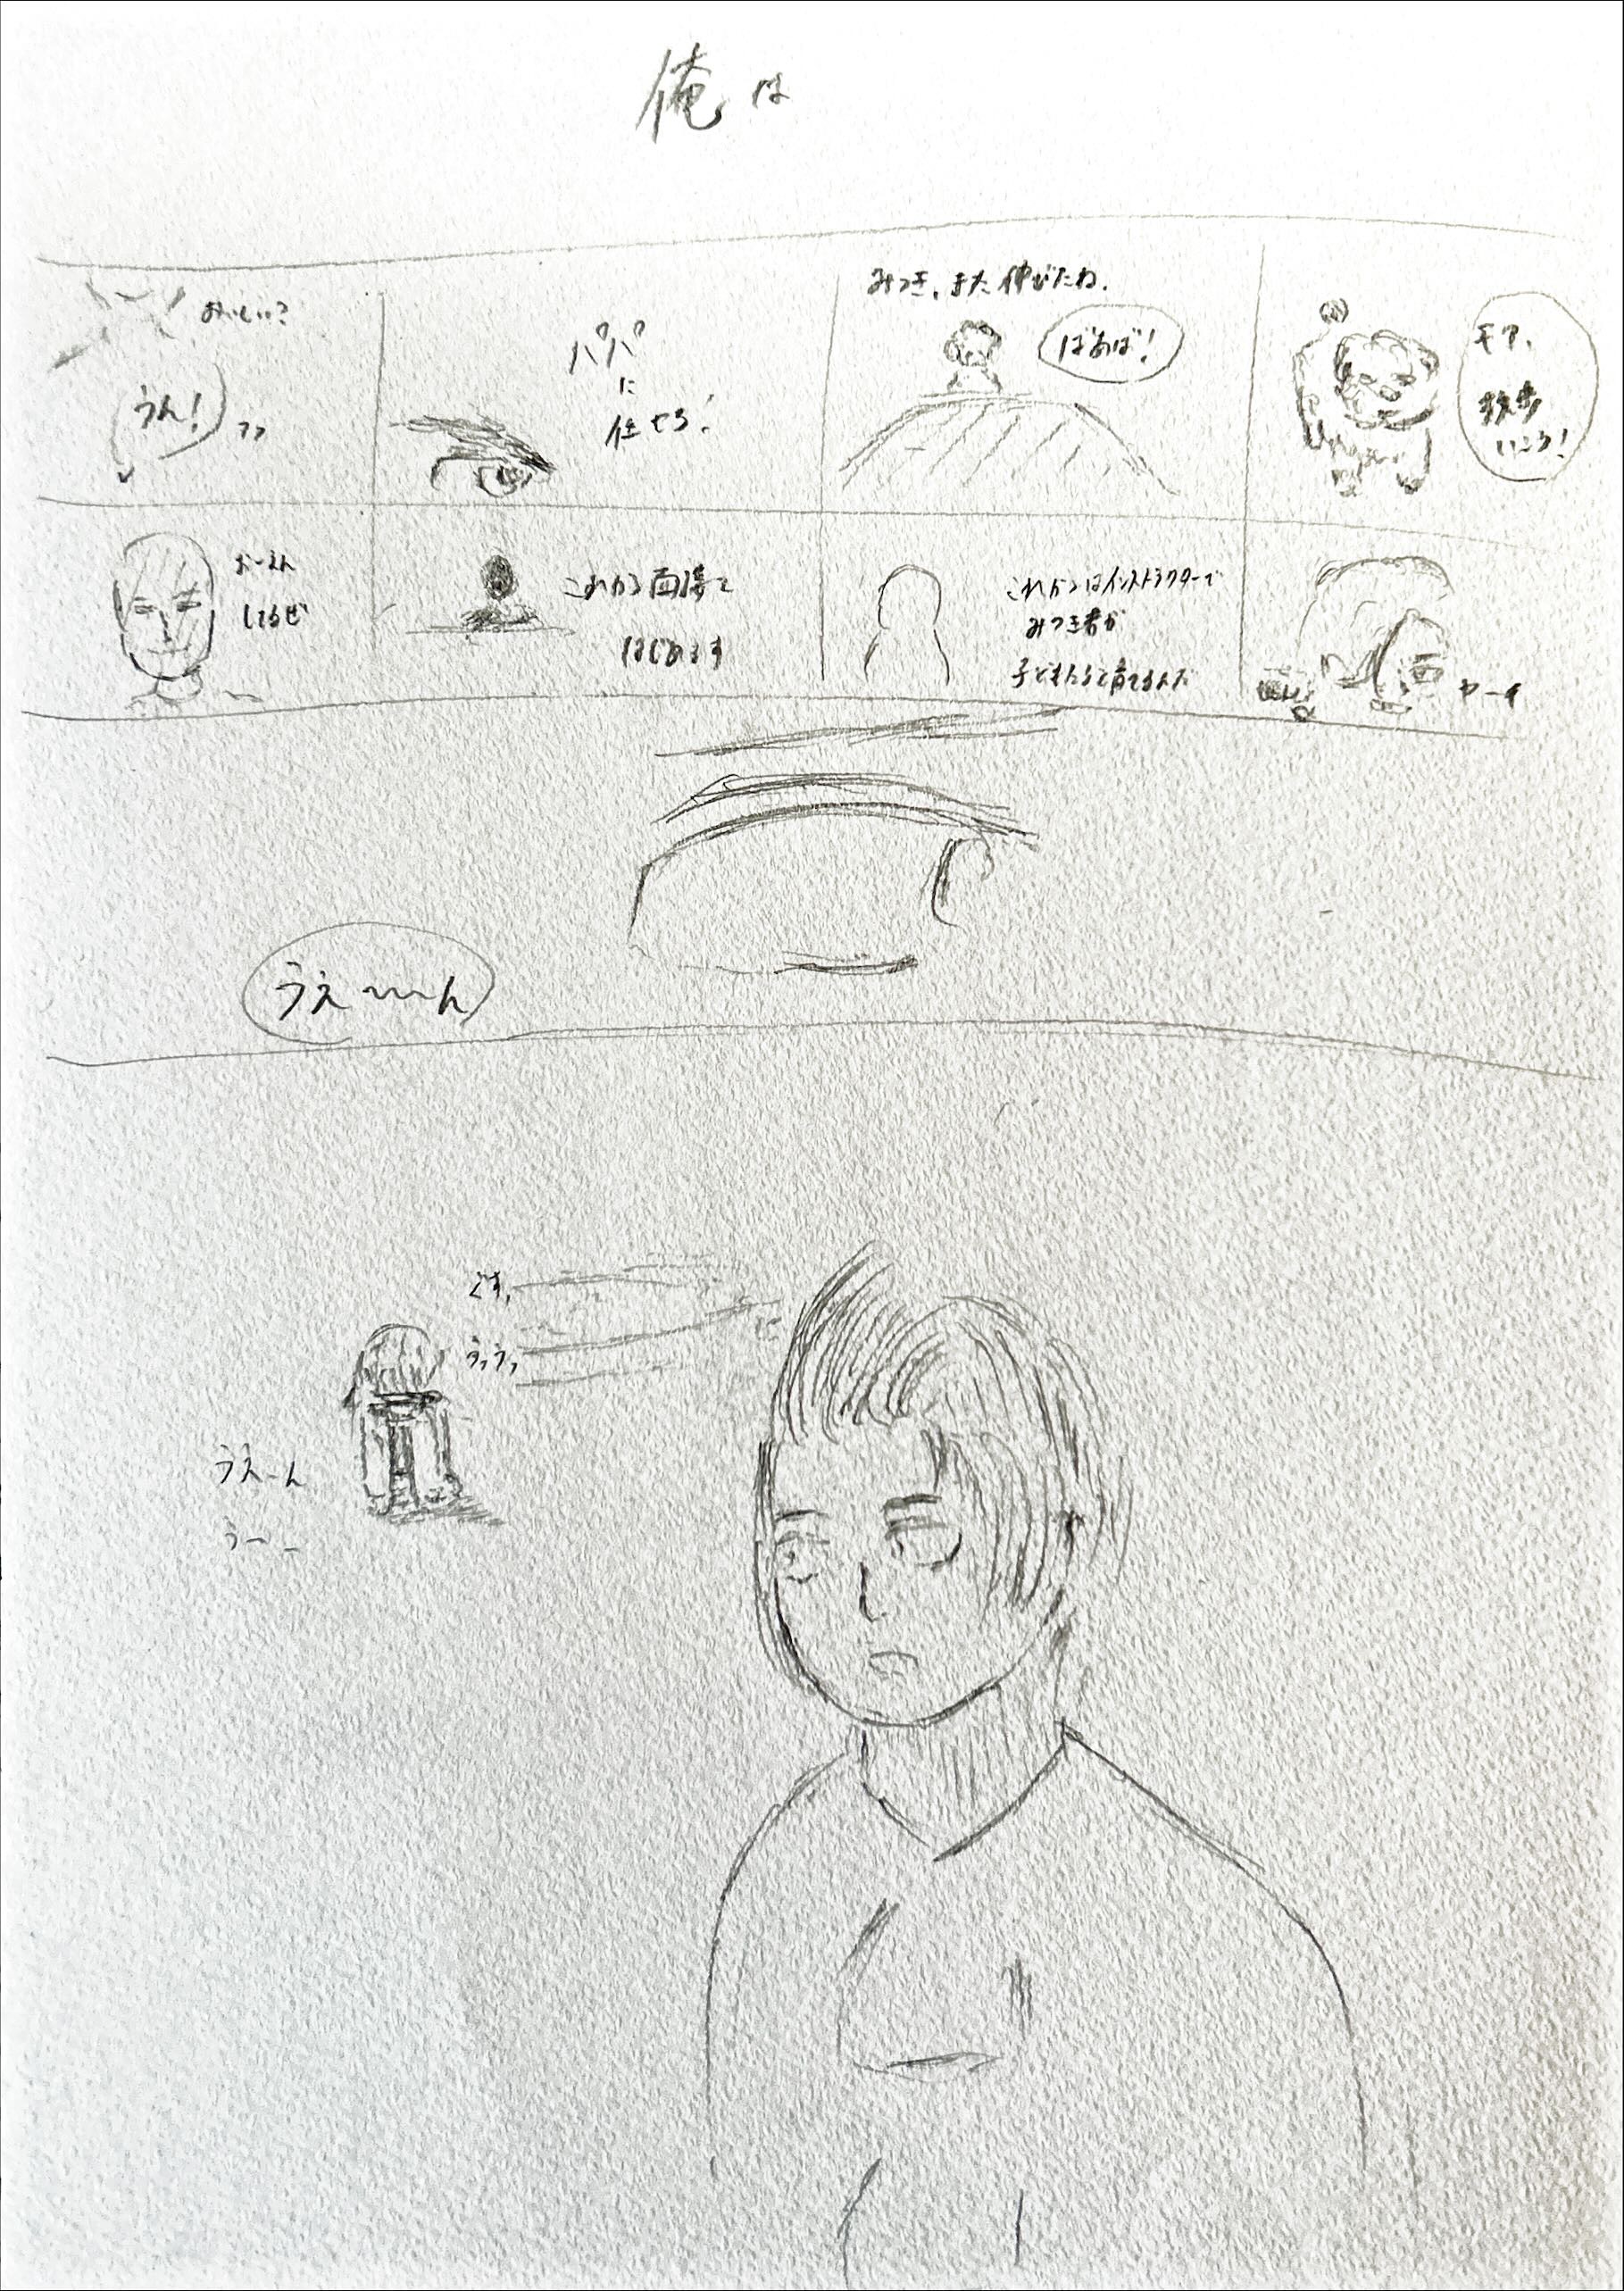 俺は
おいしい?
うん!
フフ
パパ
に
任せろ!
みつき、また伸びたね。
ばあば!
モア、
散歩
いこう!
おーえん
してるぜ
これから面接を
はじめます
これからはインストラクターで
みつき君が
子どもたちを育てるんだ
うえ〜〜ん
ぐす、
うっうっ
うえーん
うーー